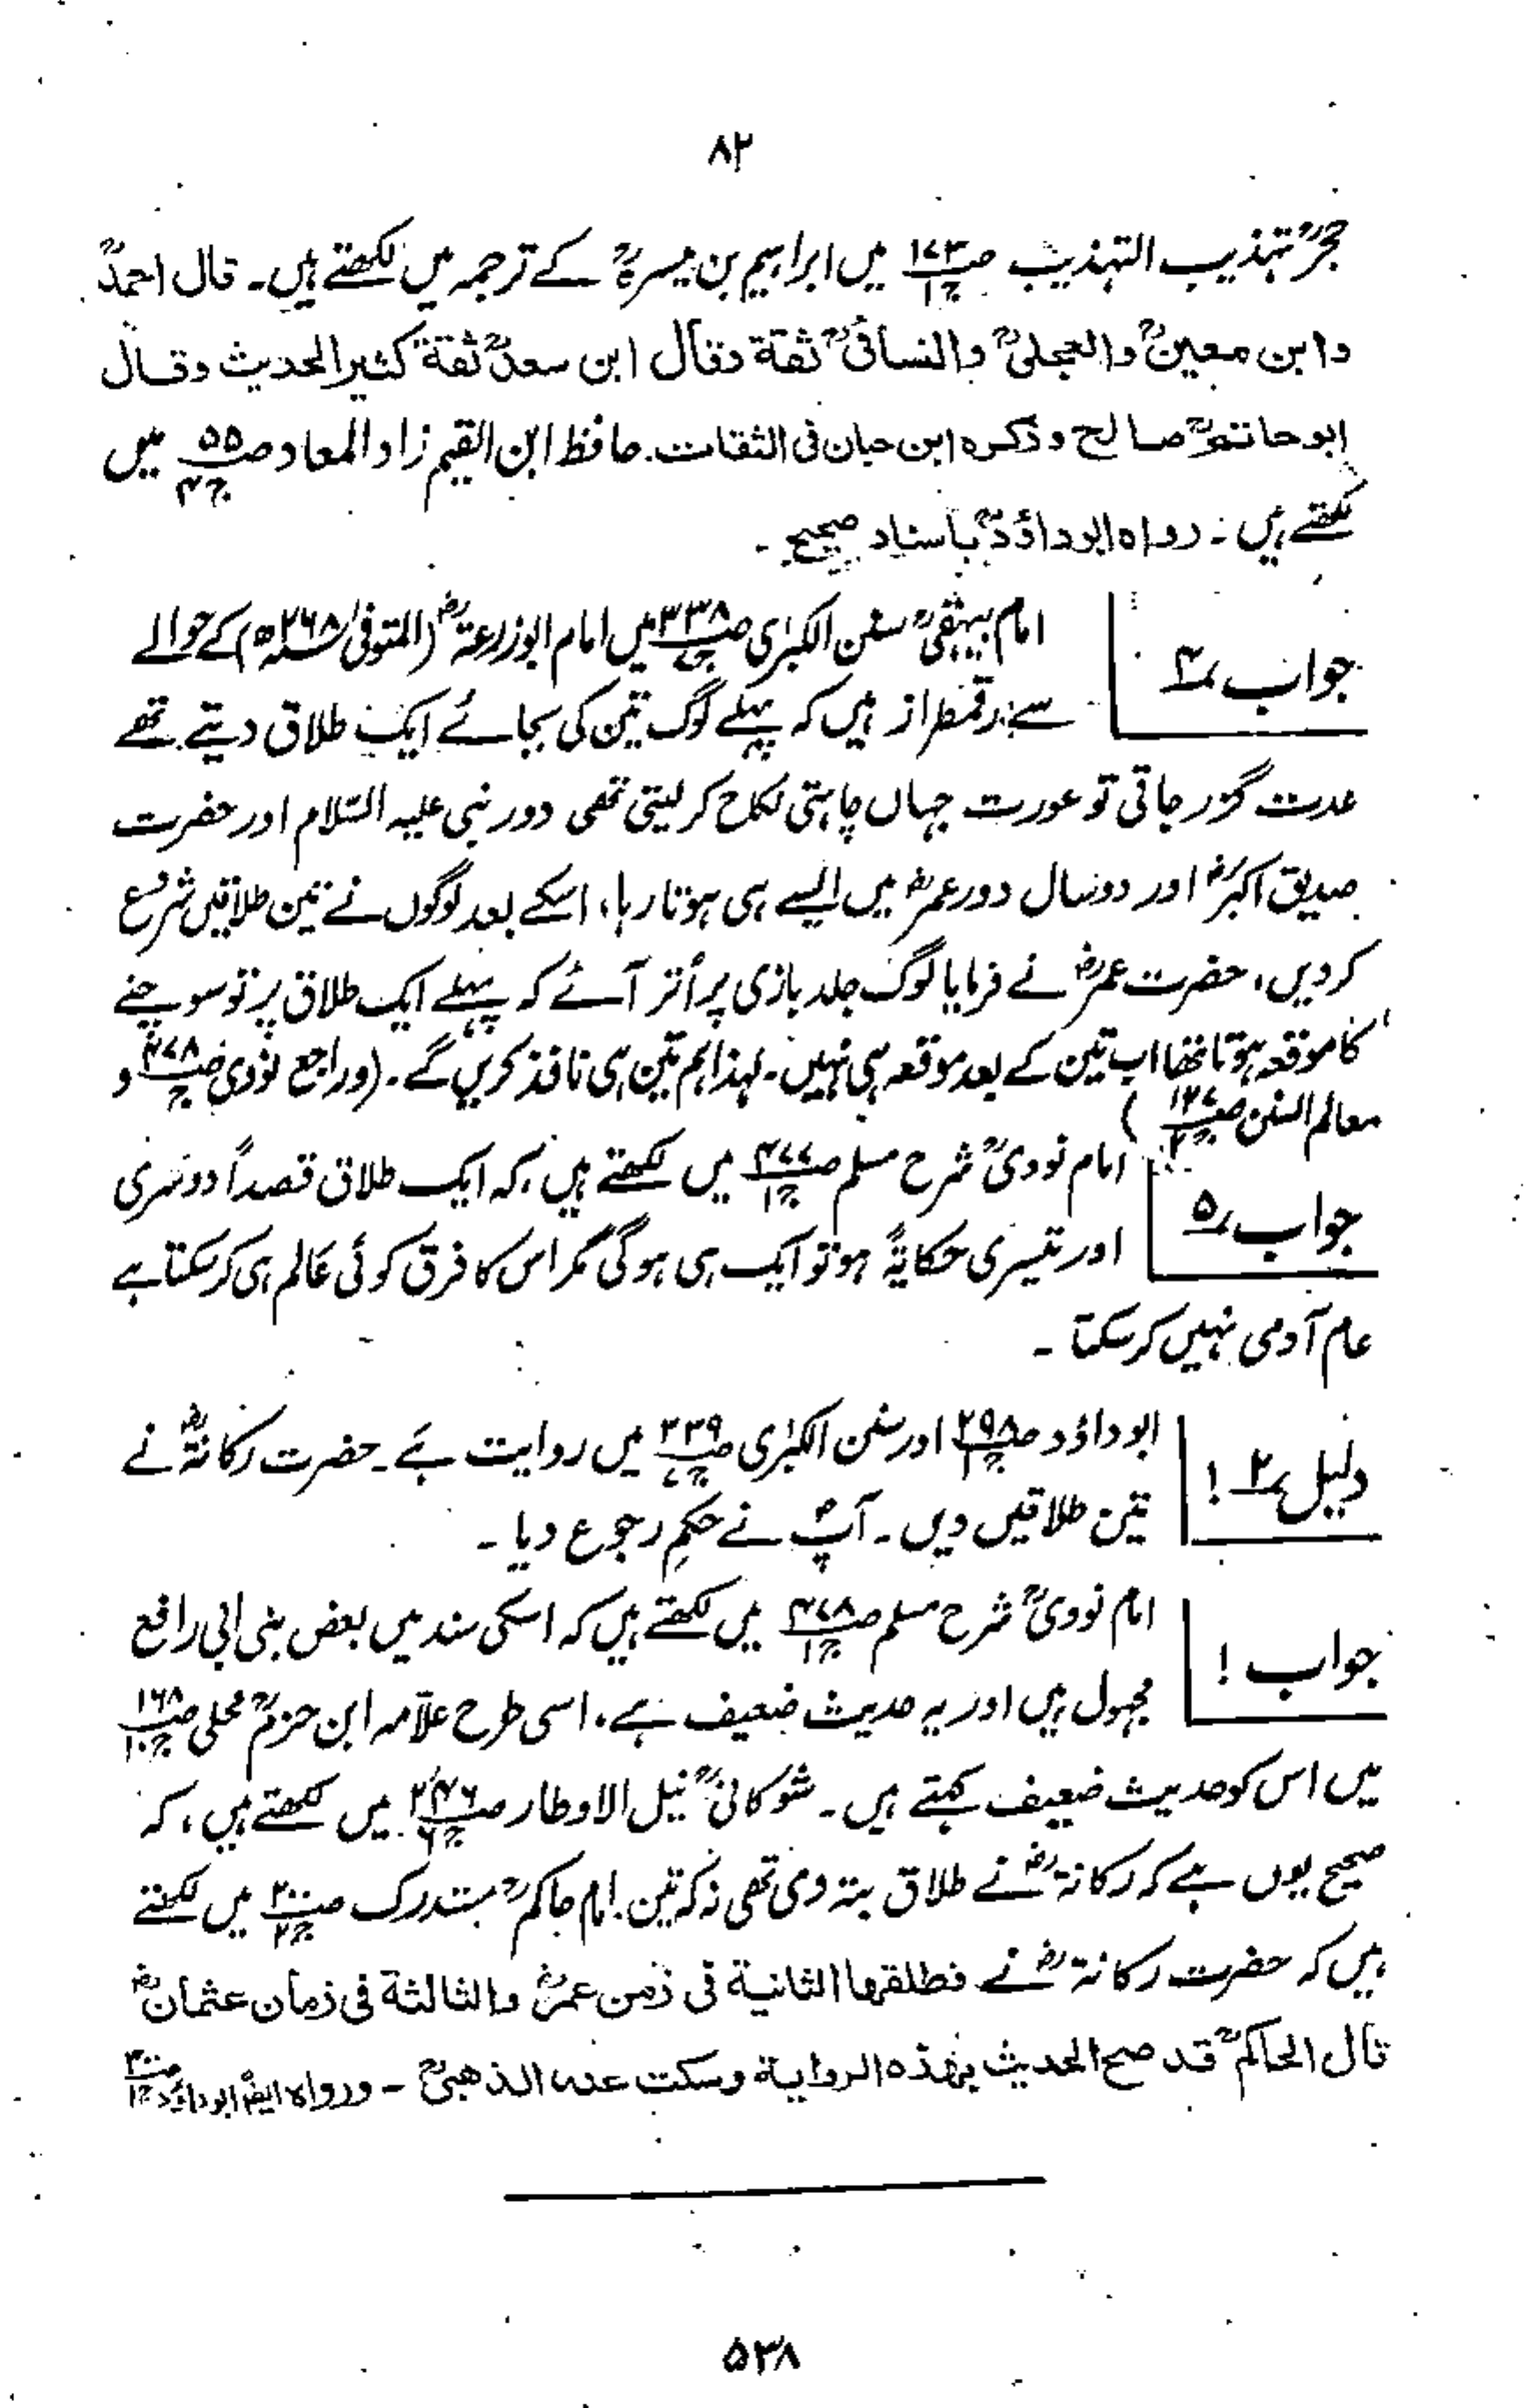 ۸۲
حجرؒ تہذیب التہذیب ص۱۷۳ ج۱ میں ابراہیم بن میسرہؒ کے ترجمہ میں لکھتے ہیں۔ قال احمدؒ
وابن معینؒ والعجلیؒ والنسائیؒ ثقة وقال ابن سعدؒ ثقة کثیر الحدیث وقال
ابوحاتمؒ صالح وذکرہ ابن حبان فی الثقات۔ حافظ ابن القیم زاد المعاد ص۵۵ ج۴ میں
لکھتے ہیں۔ رواہ ابوداؤدؒ باسناد صحیح۔
جواب ۴ امام بیہقیؒ سنن الکبرٰی ص۳۳۸ ج۷ میں امام ابوزرعۃؒ (المتوفی ۲۶۸ھ) کے حوالے
سے رقمطراز ہیں کہ پہلے لوگ تین کی بجائے ایک طلاق دیتے تھے
عدت گزر جاتی تو عورت جہاں چاہتی نکاح کر لیتی تھی دور نبی علیہ السّلام اور حضرت
صدیق اکبرؓ اور دو سال دور عمرؓ میں ایسے ہی ہوتا رہا، اسکے بعد لوگوں نے تین طلاقیں شروع
کردیں، حضرت عمرؓ نے فرمایا لوگ جلد بازی پر اُتر آئے کہ پہلے ایک طلاق پر تو سوچنے
کا موقعہ ہوتا تھا اب تین کے بعد موقعہ ہی نہیں۔ لہذا ہم تین ہی نافذ کریں گے۔ (وراجع نووی ص۴۷۸ ج۱ و
معالم السنن ص۱۲۷ )
جواب ۵ امام نووی ؒ شرح مسلم ص۴۷۷ ج۱ میں لکھتے ہیں، کہ ایک طلاق قصداً دوسری
اور تیسری حکایۃً ہو تو ایک ہی ہوگی مگر اس کا فرق کوئی عالم ہی کرسکتا ہے
عام آدمی نہیں کرسکتا۔
دلیل ۲ ! ابوداؤد ص۲۹۸ ج۱ اور سنن الکبرٰی ص۳۳۹ ج۷ میں روایت ہے۔ حضرت رکانۃؓ نے
تین طلاقیں دیں۔ آپؐ نے حکمِ رجوع دیا۔
جواب ! امام نوویؒ شرح مسلم ص۴۷۸ ج۱ میں لکھتے ہیں کہ اسکی سند میں بعض بنی ابی رافع
مجہول ہیں اور یہ حدیث ضعیف ہے، اسی طرح علاّمہ ابن حزمؒ محلی ص۱۶۸ ج۱۰
میں اس کو حدیث ضعیف کہتے ہیں۔ شوکانیؒ نیل الاوطار ص۲۴۶ ج۶ میں لکھتے ہیں، کہ
صحیح یوں ہے کہ رکانۃؓ نے طلاق بتہ دی تھی نہ کہ تین۔ امام حاکمؒ مستدرک ص۲۰۰ ج۲ میں لکھتے
ہیں کہ حضرت رکانۃؓ نے فطلقها الثانیة فی زمن عمرؓ والثالثة فی زمان عثمانؓ
قال الحاکمؒ قد صح الحدیث بهذه الروایة وسکت عنه الذهبیؒ ۔ ورواه ایضًا ابوداؤد ص۳۰۰ ج۱
۵۳۸